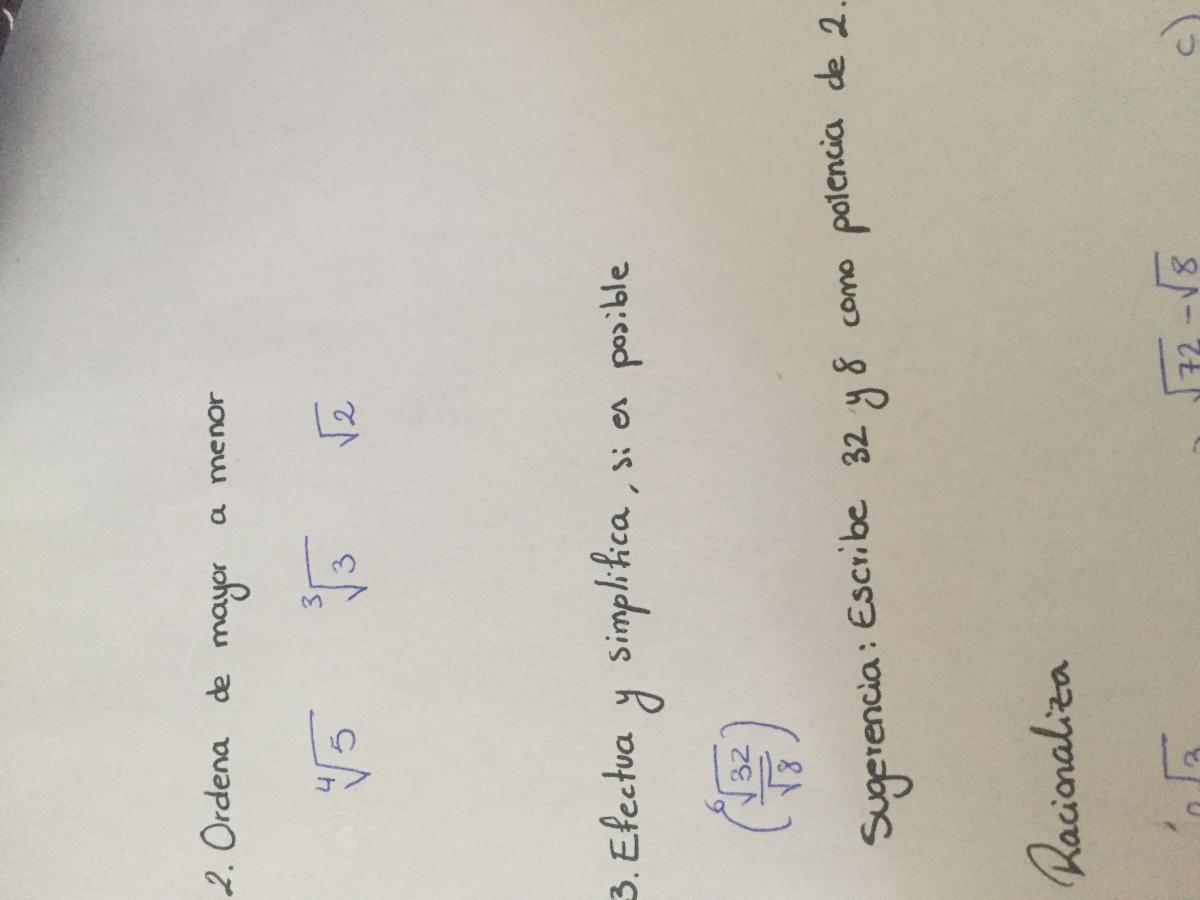 2. Ordena de mayor a menor
⁴√5 ³√3 √2
3. Efectua y simplifica, si es posible
(⁶√32/√8)
Sugerencia: Escribe 32 y 8 como potencia de 2.
Racionaliza
√3 √72-√8 c)